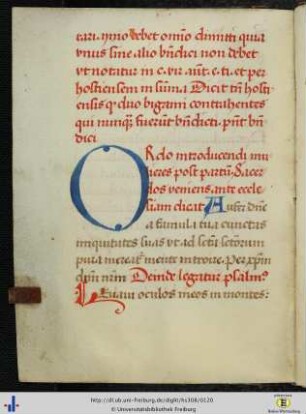 tari. ymo debet omīo dimitti quia
vnus sine alio bn̄dici non debet
vt notatur in c. vir aut̄. e. ti. et per
hostiensem in sūma Dicit tn̄ hosti
ensis qꝫ duo bigami contrahentes
qui nunqꝫ fuerūt bn̄dicti. pn̄t bn̄
dici
ORdo introducendi mu
lieres post partū. Sacer
dos veniens. ante eccle
siam dicat Aufer dn̄e
a famula tua cunctas
iniquitates suas vt ad sctā sctōrum
pura mereat᷑ mente introire. Per xp̄m
dn̄m nr̄m Deinde legatur psalm9
Leuaui oculos meos in montes:
http://dl.ub.uni-freiburg.de/diglit/hs308/0120
© Universitätsbibliothek Freiburg